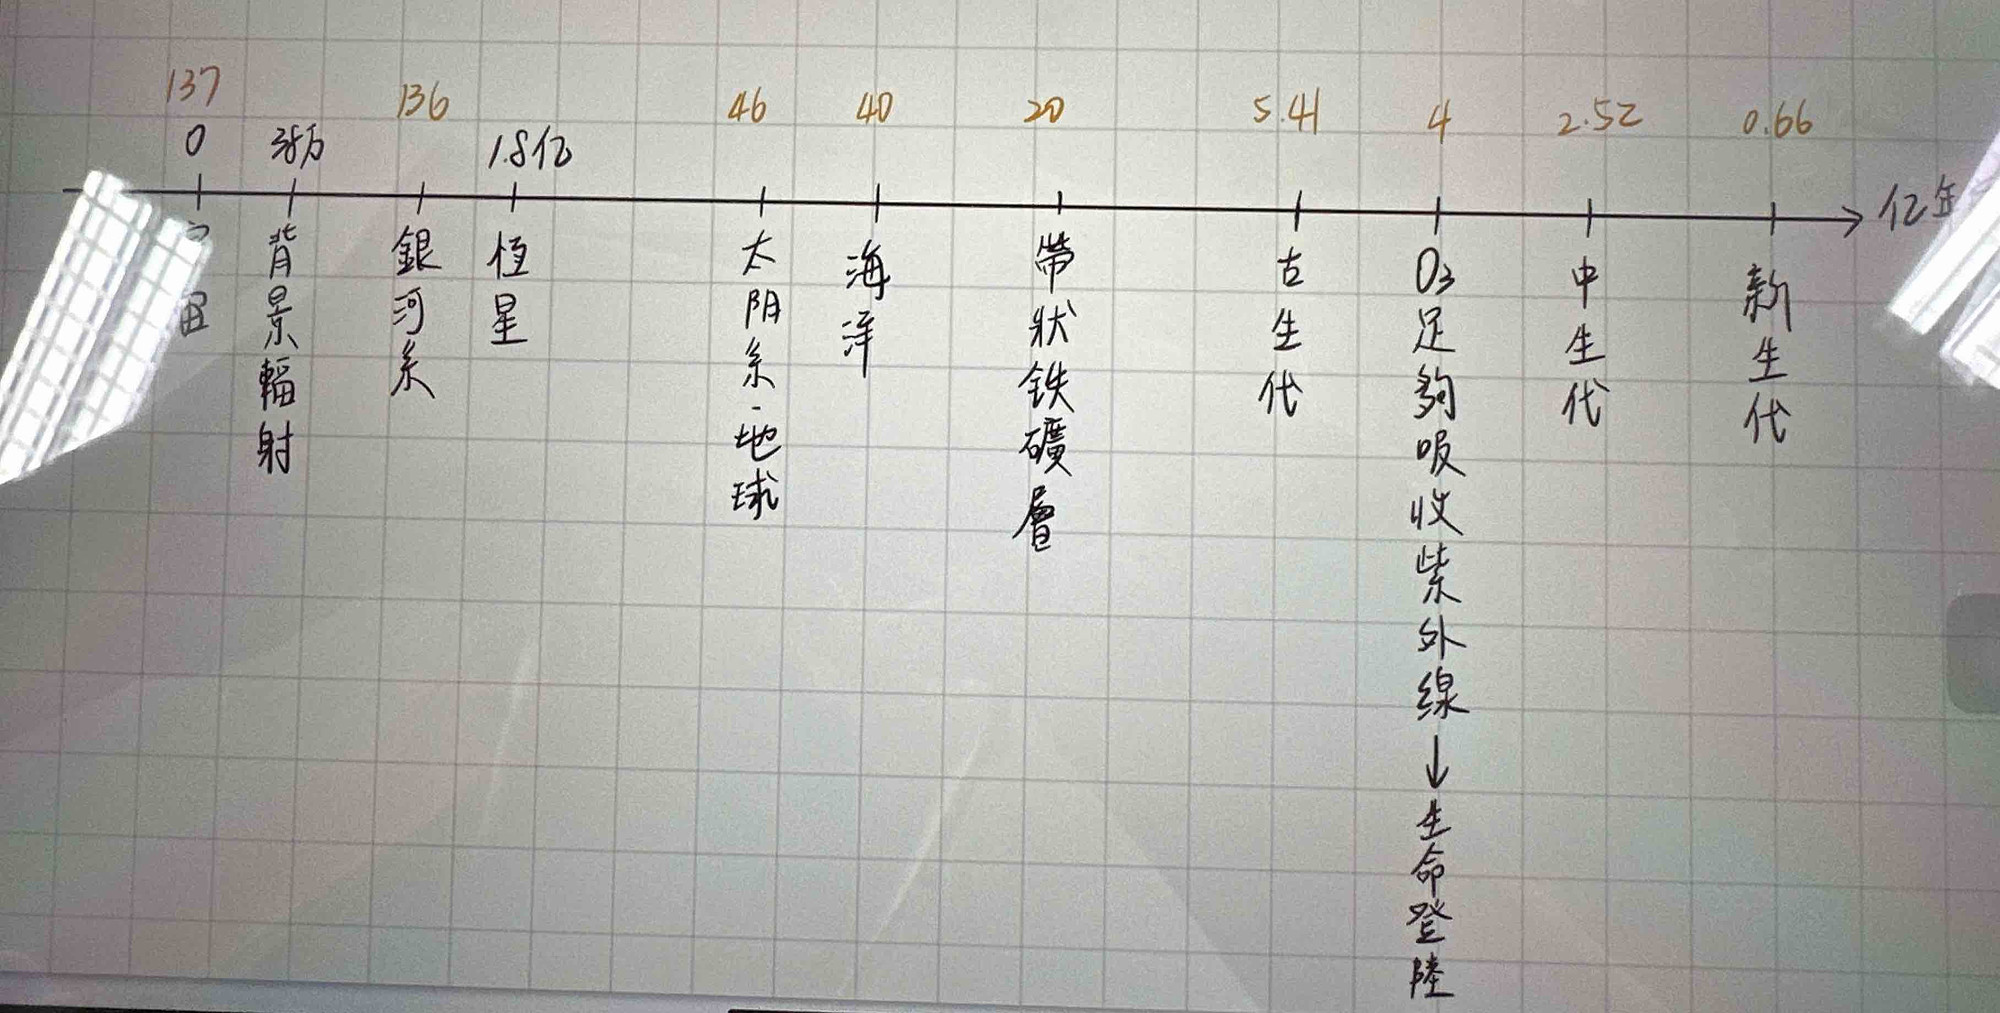 137 136 46 40 20 5.41 4 2.52 0.66
0 38万 1.8亿
亿年
宙
背景輻射
銀河系
恆星
太阴系.地球
海洋
帶狀鉄礦層
古生代
O3足夠吸收紫外線↓生命登陸
中生代
新生代